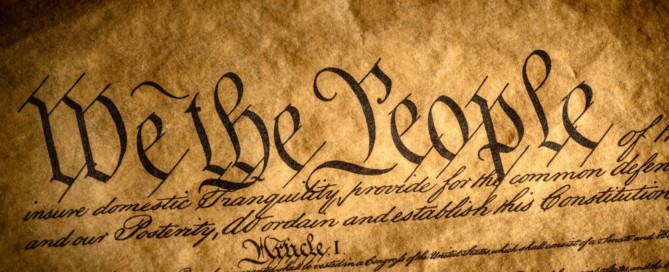 We the People of
insure domestic Tranquility, provide for the common defen
and our Posterity, do ordain and establish this Constitution
Article. I
vested in a Congress of the United States, which shall consist of a Senate and